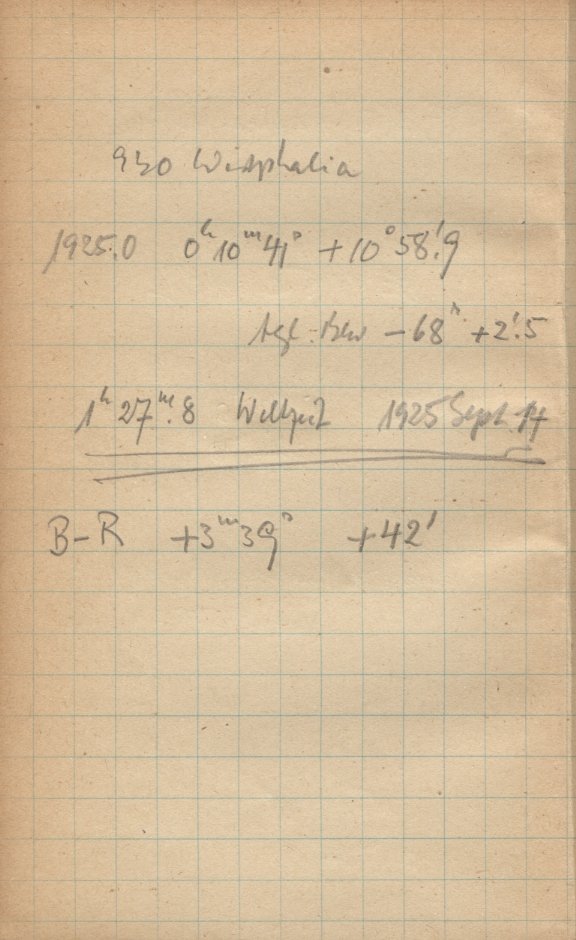 930 Westphalia
1925.0 0ʰ 10ᵐ 41ˢ +10° 58'.9
tgl. Bew −68ˢ +2'.5
1ʰ 27ᵐ.8 Weltzeit 1925 Sept. 14
B−R +3ᵐ 39ˢ +42'